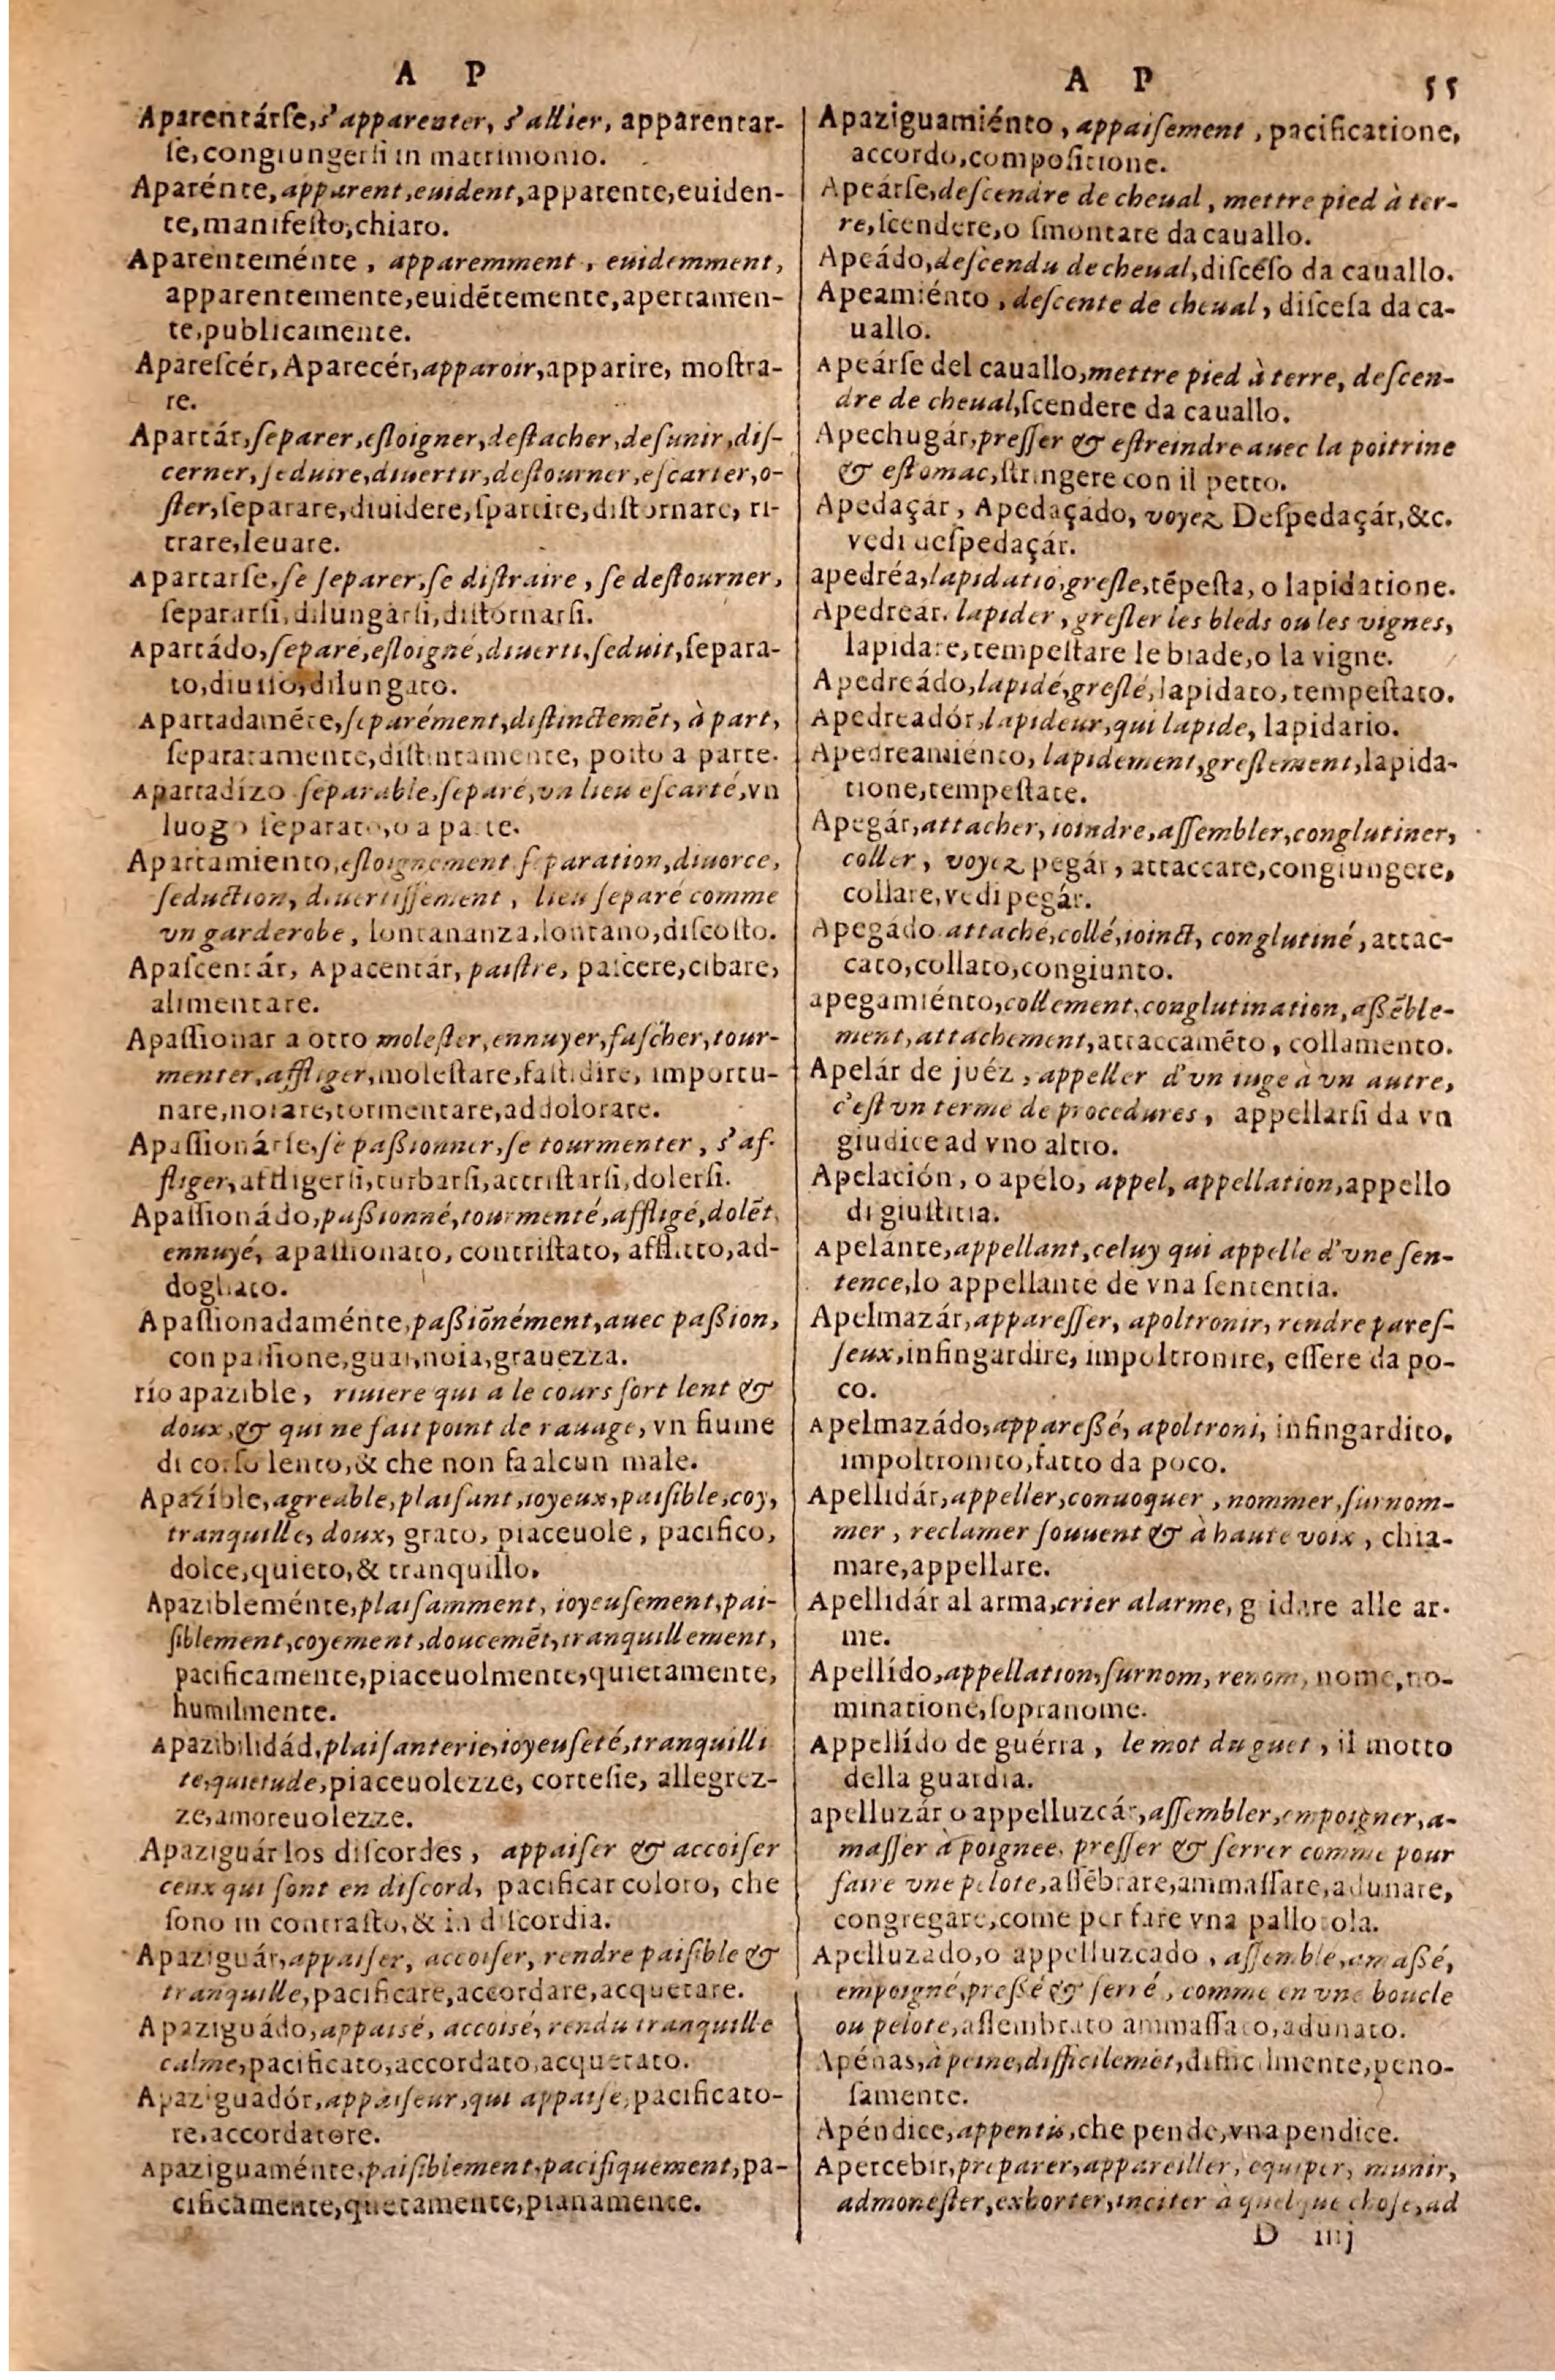 A P
Aparentárſe, s'apparenter, s'allier, apparentar-
ſe, congiungerſi in matrimonio.
Aparénte, apparent, euident, apparente, euiden-
te, manifeſto, chiaro.
Aparenteménte, apparemment, euidemment,
apparentemente, euidẽtemente, apertamen-
te, publicamente.
Apareſcér, Aparecér, apparoir, apparire, moſtra-
re.
Apartár, ſeparer, eſloigner, deſtacher, deſunir, diſ-
cerner, ſeduire, diuertir, deſtourner, eſcarter, o-
ſter, ſeparare, diuidere, ſpartire, diſtornare, ri-
trare, leuare.
Apartarſe, ſe ſeparer, ſe diſtraire, ſe deſtourner,
ſepararſi, dilungarſi, diſtornarſi.
Apartádo, ſeparé, eſloigné, diuerti, ſeduit, ſepara-
to, diuiſo, dilungato.
Apartadamẽte, ſeparément, diſtinctemẽt, à part,
ſeparatamente, diſtintamente, poſto a parte.
Apartadízo ſeparable, ſeparé, vn lieu eſcarté, vn
luogo ſeparato, o a parte.
Apartamiento, eſloignement ſeparation, diuorce,
ſeduction, diuertiſſement, lieu ſeparé comme
vn garderobe, lontananza, lontano, diſcoſto.
Apaſcentár, Apacentár, paiſtre, paſcere, cibare,
alimentare.
Apaſſionar a otro moleſter, ennuyer, faſcher, tour-
menter, affliger, moleſtare, faſtidire, importu-
nare, noiare, tormentare, addolorare.
Apaſſionárſe, ſe paßionner, ſe tourmenter, s'af-
fliger, affligerſi, turbarſi, attriſtarſi, dolerſi.
Apaſſionádo, paßionné, tourmenté, affligé, dolẽt,
ennuyé, apaſſionato, contriſtato, afflitto, ad-
dogliato.
Apaſſionadaménte, paßiõnément, auec paßion,
con paſſione, guai, noia, grauezza.
río apazible, riuiere qui a le cours fort lent &
doux, & qui ne fait point de rauage, vn fiume
di corſo lento, & che non fa alcun male.
Apazíble, agreable, plaiſant, ioyeux, paiſible, coy,
tranquille, doux, grato, piaceuole, pacifico,
dolce, quieto, & tranquillo.
Apazibleménte, plaiſamment, ioyeuſement, pai-
ſiblement, coyement, doucemẽt, tranquillement,
pacificamente, piaceuolmente, quietamente,
humilmente.
Apazibilidád, plaiſanterie, ioyeuſeté, tranquilli
te, quietude, piaceuolezze, corteſie, allegrez-
ze, amoreuolezze.
Apaziguár los diſcordes, appaiſer & accoiſer
ceux qui ſont en diſcord, pacificar coloro, che
ſono in contraſto, & in diſcordia.
Apaziguár, appaiſer, accoiſer, rendre paiſible &
tranquille, pacificare, accordare, acquetare.
Apaziguádo, appaisé, accoisé, rendu tranquille
calme, pacificato, accordato, acquetato.
Apaziguadór, appaiſeur, qui appaiſe, pacificato-
re, accordatore.
Apaziguaménte, paiſiblement, pacifiquement, pa-
cificamente, quetamente, pianamente.
A P 55
Apaziguamiénto, appaiſement, pacificatione,
accordo, compoſitione.
Apeárſe, deſcendre de cheual, mettre pied à ter-
re, ſcendere, o ſmontare da cauallo.
Apeádo, deſcendu de cheual, diſceſo da cauallo.
Apeamiénto, deſcente de cheual, diſceſa da ca-
uallo.
Apeárſe del cauallo, mettre pied à terre, deſcen-
dre de cheual, ſcendere da cauallo.
Apechugár, preſſer & eſtreindre auec la poitrine
& eſtomac, ſtringere con il petto.
Apedaçár, Apedaçádo, voyez Deſpedaçár, &c.
vedi deſpedaçár.
apedréa, lapidatiō, greſle, tẽpeſta, o lapidatione.
Apedreár. lapider, greſler les bleds ou les vignes,
lapidare, tempeſtare le biade, o la vigne.
Apedreádo, lapidé, greſlé, lapidato, tempeſtato.
Apedreadór, lapideur, qui lapide, lapidario.
Apedreamiénto, lapidement, greſlement, lapida-
tione, tempeſtate.
Apegár, attacher, ioindre, aſſembler, conglutiner,
coller, voyez pegár, attaccare, congiungere,
collare, vedi pegár.
Apegádo attaché, collé, ioinct, conglutiné, attac-
cato, collato, congiunto.
apegamiénto, collement, conglutination, aßẽble-
ment, attachement, attaccamẽto, collamento.
Apelár de juéz, appeller d'vn iuge à vn autre,
c'eſt vn terme de procedures, appellarſi da vn
giudice ad vno altro.
Apelación, o apelo, appel, appellation, appello
di giuſtitia.
Apelánte, appellant, celuy qui appelle d'vne ſen-
tence, lo appellante de vna ſententia.
Apelmazár, appareſſer, apoltronir, rendre pareſ-
ſeux, infingardire, impoltronire, eſſere da po-
co.
Apelmazádo, appareßé, apoltroni, infingardito,
impoltronito, fatto da poco.
Apellidár, appeller, conuoquer, nommer, ſurnom-
mer, reclamer ſouuent & à haute voix, chia-
mare, appellare.
Apellidár al arma, crier alarme, g idare alle ar-
me.
Apellído, appellation, ſurnom, renom, nome, no-
minatione, ſopranome.
Appellído de guérra, le mot du guet, il motto
della guardia.
apelluzár o appelluzcár, aſſembler, empoigner, a-
maſſer à poignee, preſſer & ſerrer comme pour
faire vne pelote, aſſẽbrare, ammaſſare, adunare,
congregare, come per fare vna pallotola.
Apelluzado, o appelluzcado, aſſemble, amaßé,
empoigné, preßé & ſerré, comme en vne boucle
ou pelote, aſſembrato ammaſſato, adunato.
Apénas, à peine, difficilemẽt, difficilmente, peno-
ſamente.
Apéndice, appentis, che pende, vna pendice.
Apercebir, preparer, appareiller, equiper, munir,
admoneſter, exhorter, inciter à quelque choſe, ad
D iiij